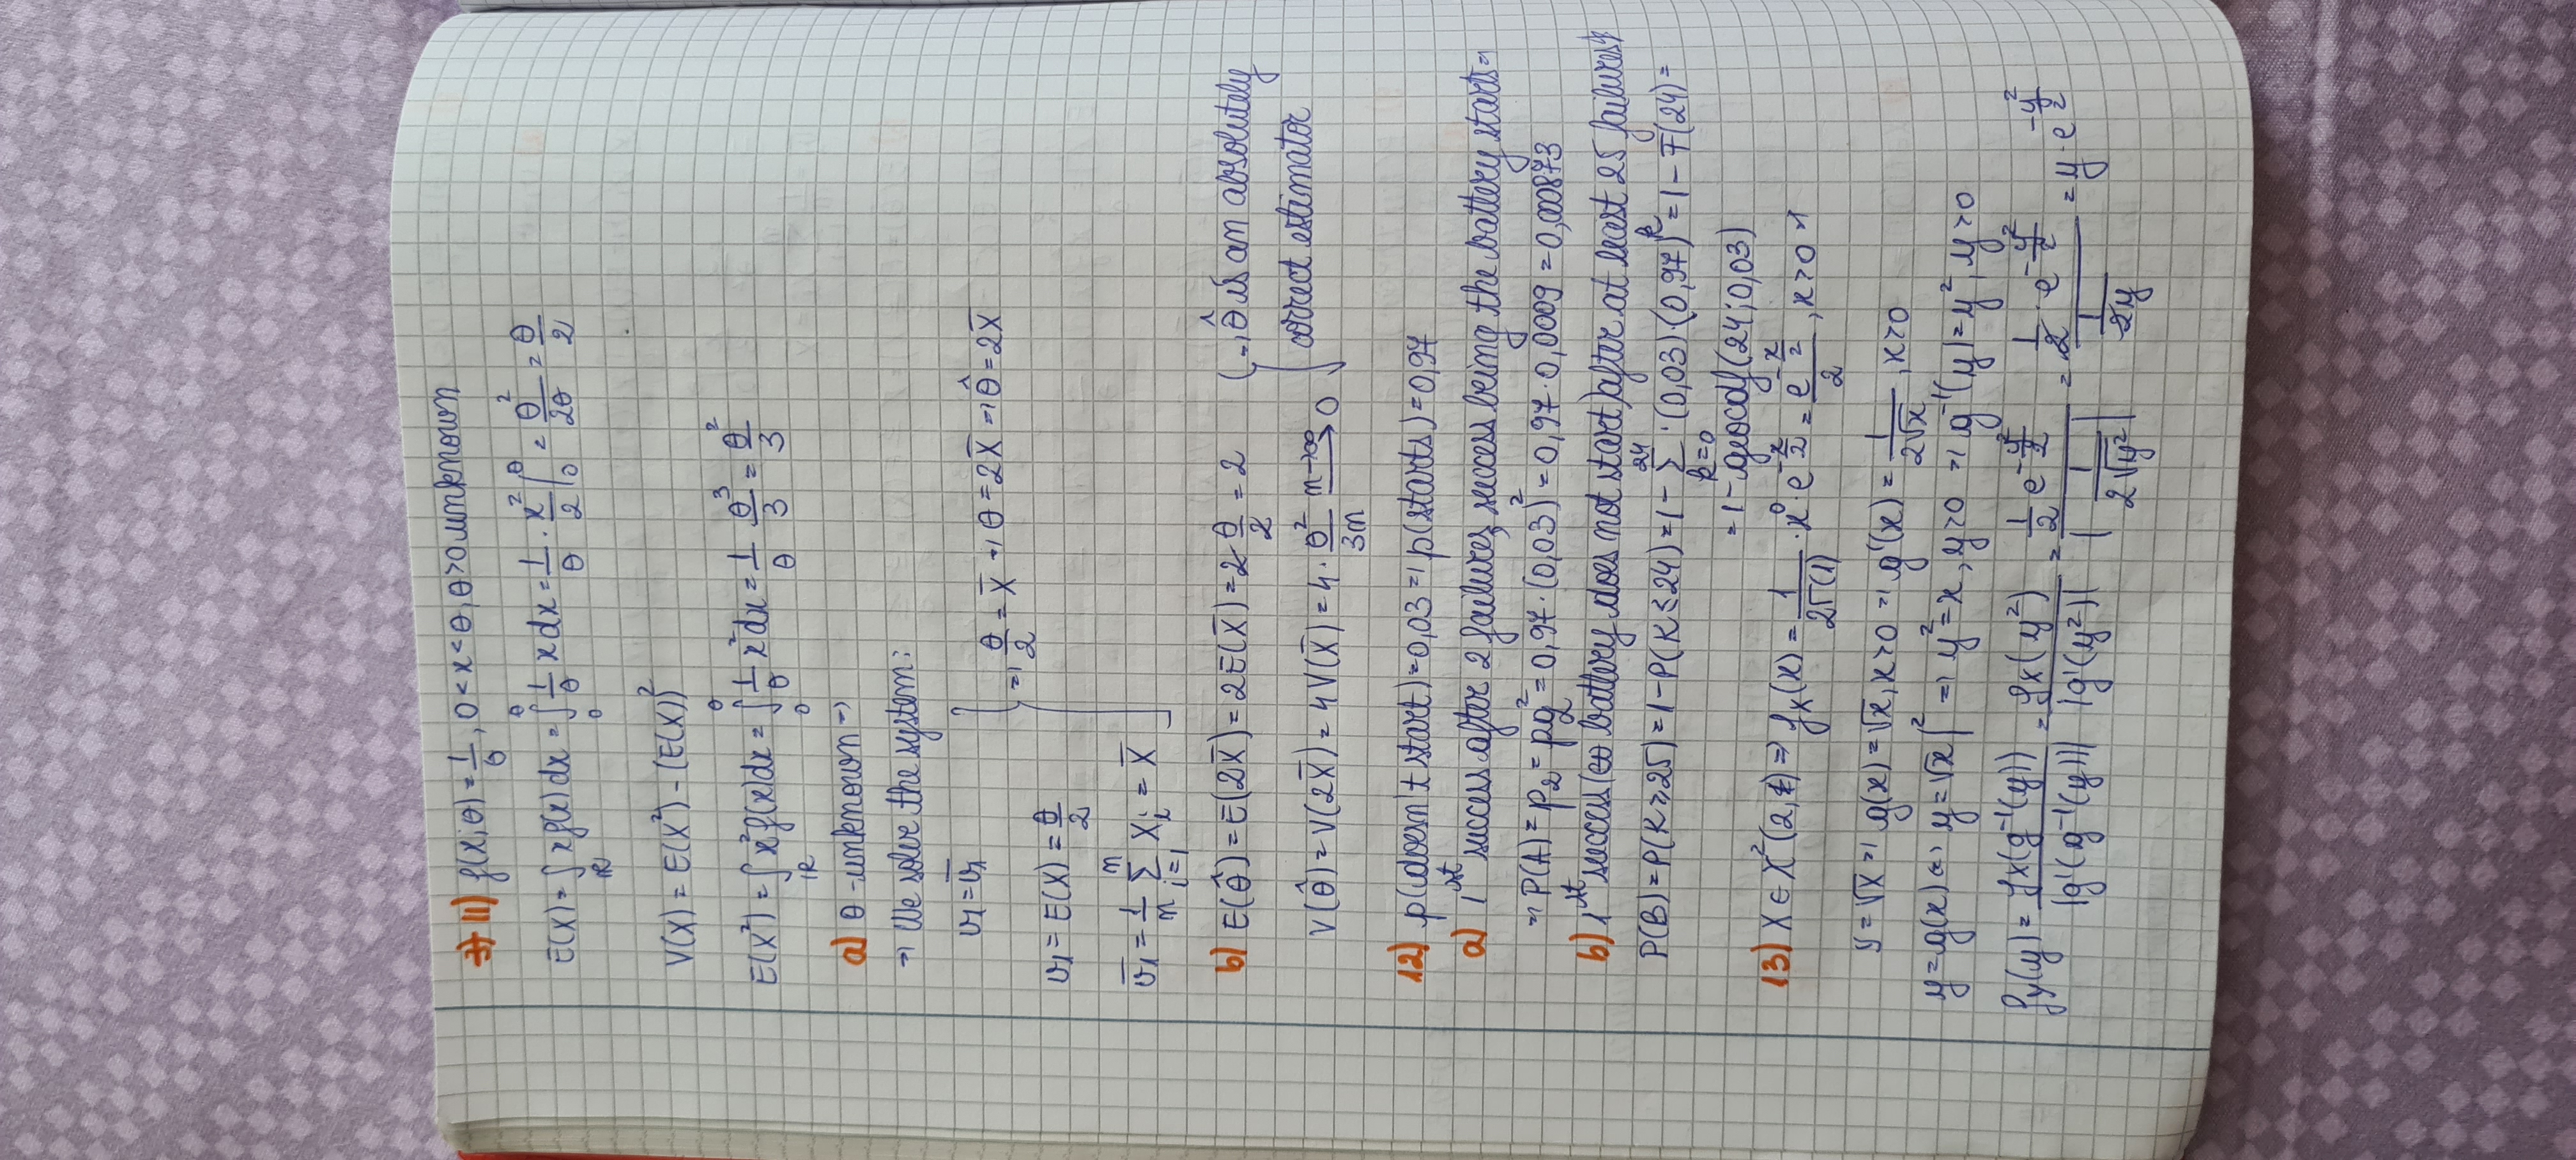 11) f(x;θ) = 1/θ, 0 < x < θ, θ > 0 unknown
E(X) = ∫_ℝ x f(x) dx = ∫_0^θ 1/θ x dx = 1/θ · x²/2 |_0^θ = θ²/2θ = θ/2
V(X) = E(X²) - (E(X))²
E(X²) = ∫_ℝ x² f(x) dx = ∫_0^θ 1/θ x² dx = 1/θ θ³/3 = θ²/3
a) θ - unknown ⇒
⇒ We solve the system:
ν₁ = ν̄₁
⇒ θ/2 = X̄ ⇒ θ = 2X̄ ⇒ θ̂ = 2X̄
ν₁ = E(X) = θ/2
ν̄₁ = 1/n Σ_{i=1}^n X_i = X̄
b) E(θ̂) = E(2X̄) = 2E(X̄) = 2 θ/2 = 2 ⇒ θ̂ is an absolutely
correct estimator
V(θ̂) = V(2X̄) = 4V(X̄) = 4 · θ²/3n n→∞ → 0
12) p(doesn't start) = 0,03 ⇒ p(starts) = 0,97
a) 1st success after 2 failures, success being the battery starts ⇒
⇒ P(A) = p₂ = pq² = 0,97 · (0,03)² = 0,97 · 0,0009 = 0,000873
b) 1st success (⇔ battery does not start) after at least 25 failures
P(B) = P(K ≥ 25) = 1 - P(K ≤ 24) = 1 - Σ_{k=0}^{24} · (0,03) · (0,97)^k = 1 - F(24) =
= 1 - geocdf(24; 0,03)
13) X ∈ X²(2,1) ⇒ f_X(x) = 1/2Γ(1) · x⁰ · e^{-x/2} = e^{-x/2}/2, x > 0
y = √x ⇒ g(x) = √x, x > 0 ⇒ g'(x) = 1/2√x, x > 0
y = g(x) ⇔ y = √x |² ⇒ y² = x, y > 0 ⇒ g⁻¹(y) = y², y > 0
f_Y(y) = f_X(g⁻¹(y))/|g'(g⁻¹(y))| = f_X(y²)/|g'(y²)| = 1/2 e^{-y²/2}/|1/2√y²| = 1/2 · e^{-y²/2}/1/2y = y · e^{-y²/2}